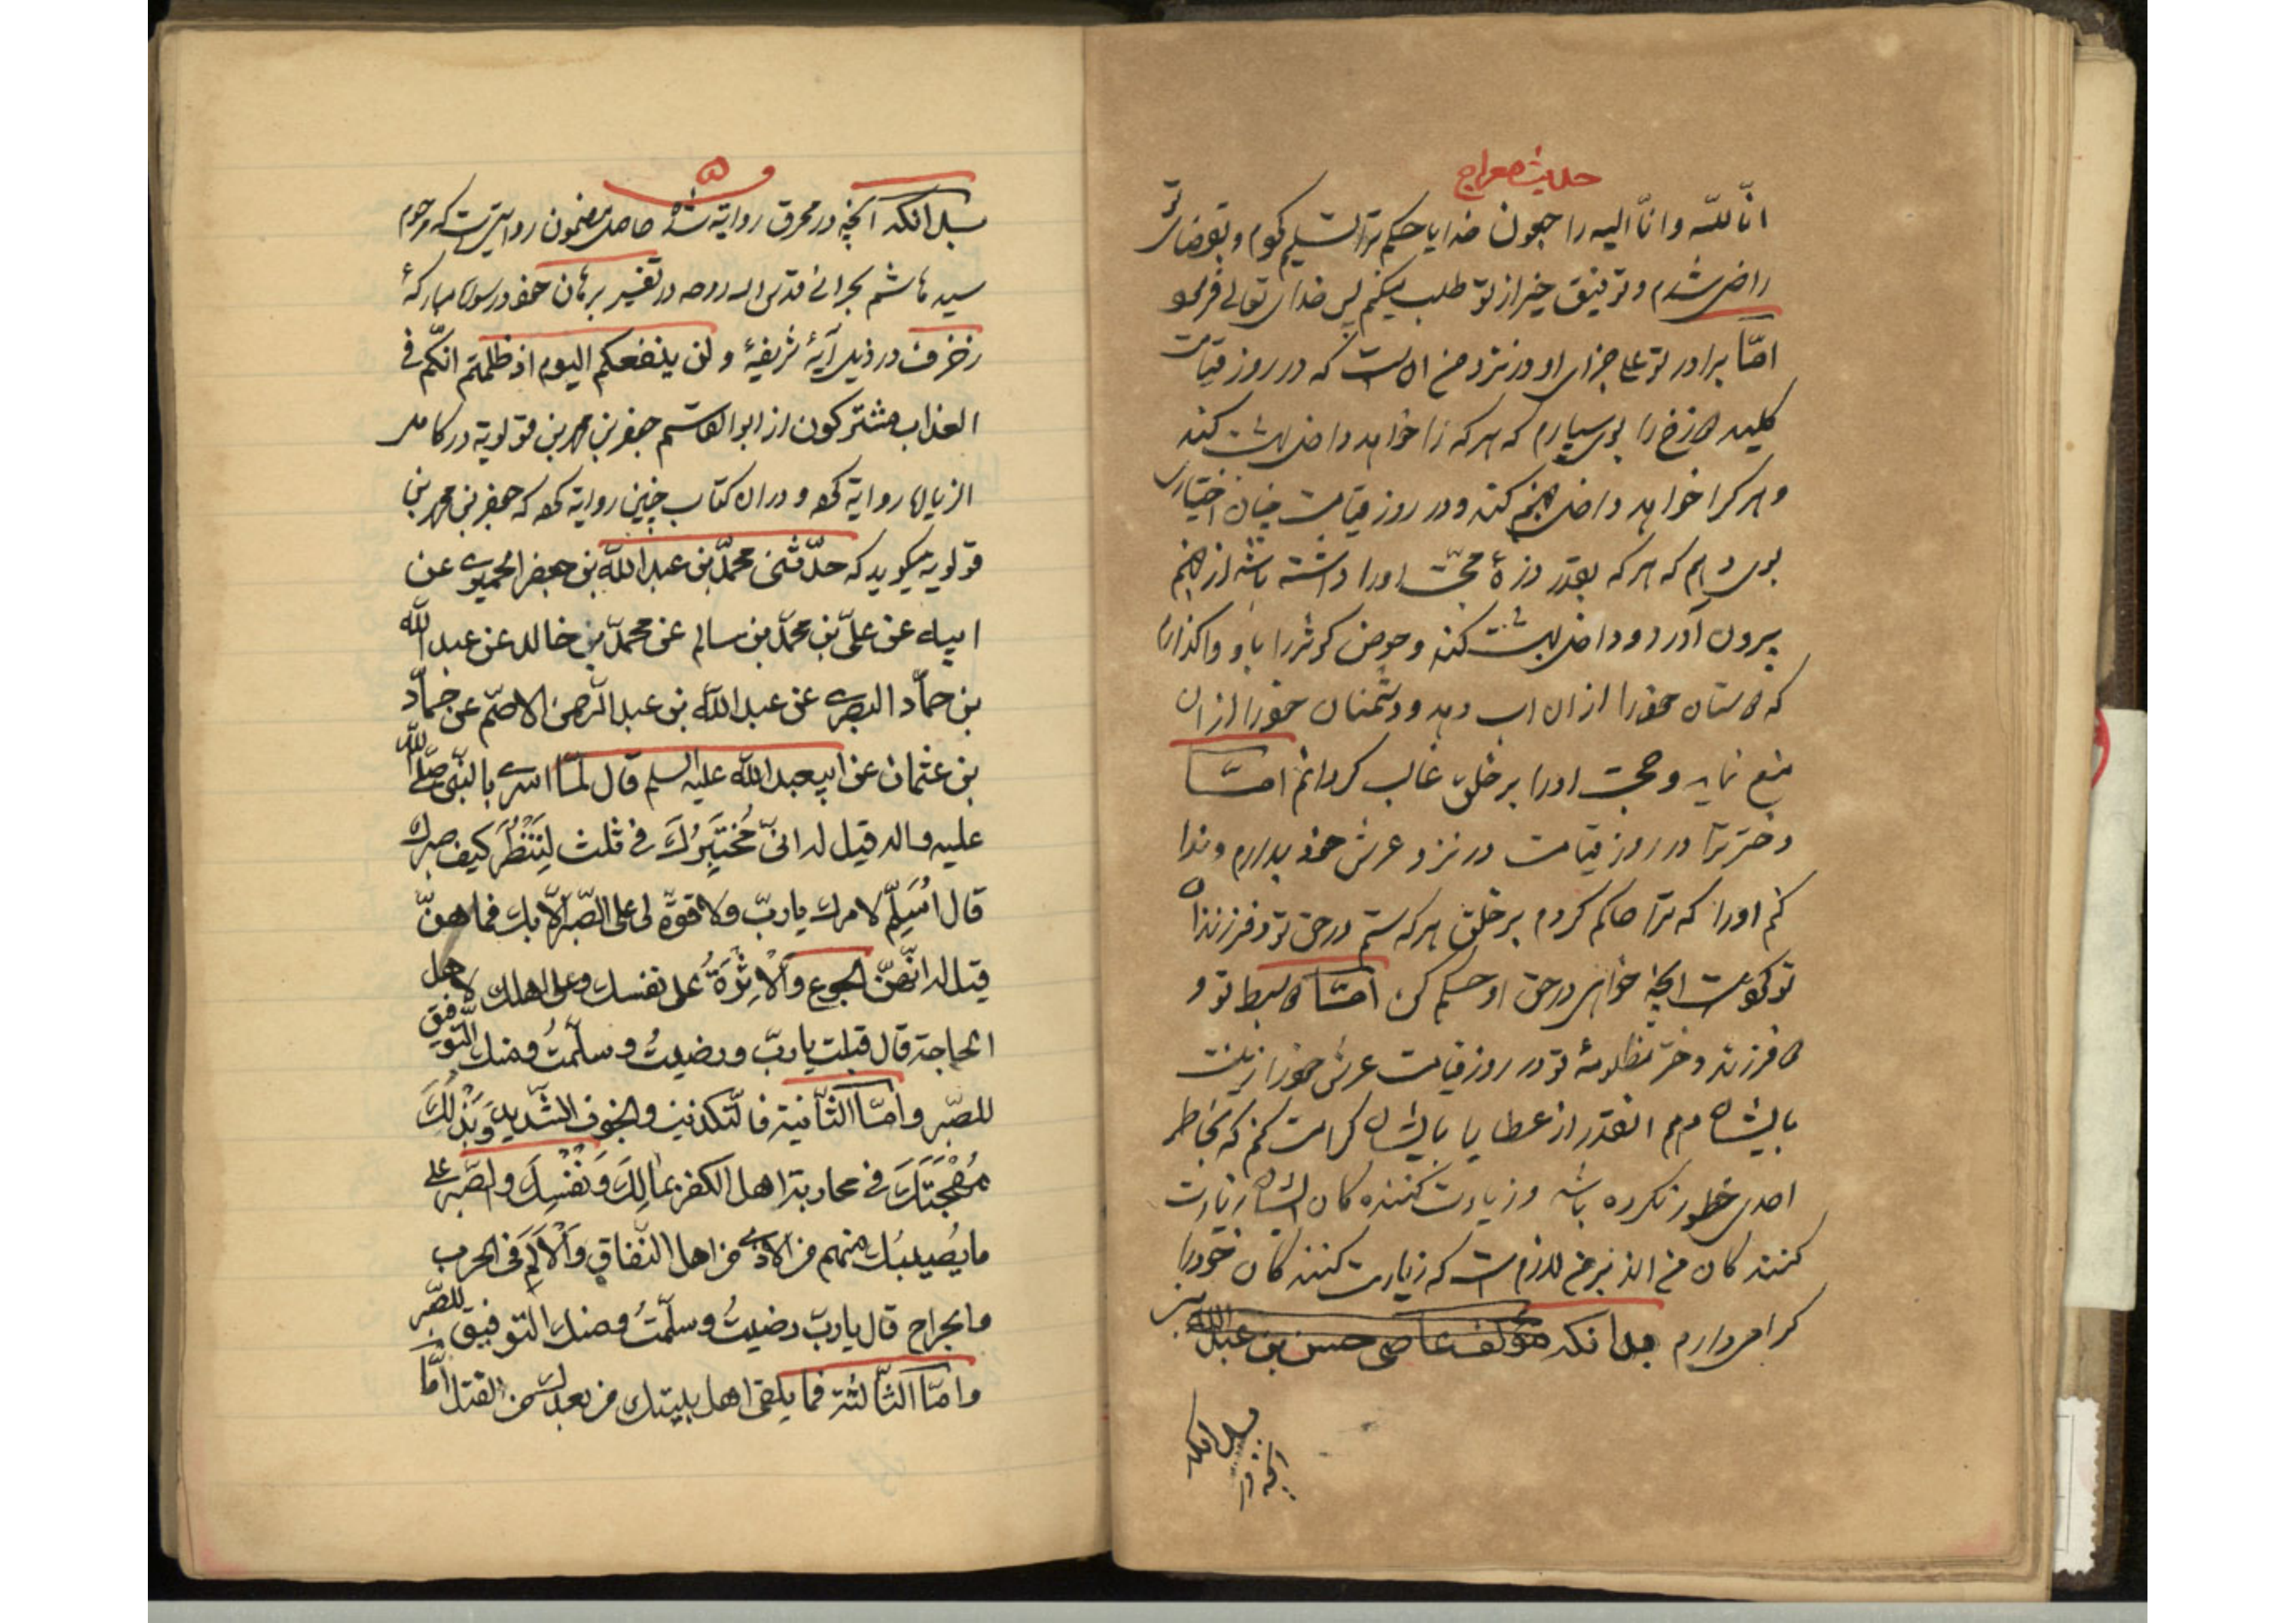 حدیث معراج
انّا للّه وانّا الیه راجعون خدایا حکم ترا تسلیم کردم و بقضای تو
راضی شدم و توفیق خیر از تو طلب میکنم پس خدای تعالی فرمود
امّا برادر تو علی جزای او در نزد من آن است که در روز قیامت
کلید دوزخ را بوی سپارم که هر که را خواهد داخل بهشت کند
و هر کرا خواهد داخل جهنم کند و در روز قیامت چنان اختیاری
بوی دهم که هر که بقدر ذرهٔ محبّت او را داشته باشد از جهنم
بیرون آورد و داخل بهشت کند و حوض کوثر را باو واگذارم
که دوستان خود را از ان اب دهد و دشمنان خود را از ان
منع نماید و حجت او را بر خلق غالب گردانم امّا
دختر ترا در روز قیامت در نزد عرش خود بدارم و ندا
کنم او را که ترا حاکم کردم بر خلق هر که ستم در حق تو و فرزندان
تو کرده است انچه خواهی در حق او حکم کن امّا دو سبط تو و
دو فرزند دختر مظلومهٔ تو در روز قیامت عرش خود را زینت
بایشان دهم انقدر از عطایا بایشان کرامت کنم که بخاطر
احدی خطور نکرده باشد و زیارت کننده کان ایشان زیارت
کننده کان من اند و بر من لازم است که زیارت کننده کان خود را
گرامی دارم بدانکه مؤلف عاصی حسن بن عبدالله
بدانکه
انچه در
۵
بدانکه انچه در محرق روایة شده حاصل مضمون روایتی است که مرحوم
سید هاشم بحرانی قدس الله روحه در تفسیر برهان خود در سورۀ مبارکهٔ
زخرف در ذیل آیهٔ شریفهٔ و لن ینفعکم الیوم اذ ظلمتم انّکم فی
العذاب مشترکون از ابوالقاسم جعفر بن محمد بن قولویة در کامل
الزیارات روایة کرده و در ان کتاب چنین روایة کرده که جعفر بن محمد بن
قولویه میکوید که حدّثنی محمّد بن عبدالله بن جعفر الحمیری عن
ابیه عن علیّ بن محمّد بن سالم عن محمّد بن خالد عن عبد الله
بن حمّاد البصری عن عبدالله بن عبدالرّحمن الاصمّ عن حمّاد
بن عثمان عن ابیعبدالله علیه السلم قال لمّا اسری بالنّبی صلّی الله
علیه واله قیل له انیّ مُخْتَبِرُكَ فی ثلث لِیَنْظُرَ کیف صبرك
قال اُسَلِّمُ لامرك یا ربّ ولا قوّة لی علی الصّبر الّا بك فما هنّ
قیل له انّهنّ الجوع والْاِثْرَةُ علی نفسك وعلی اهلك لاهل
الحاجة قال قبلت یا ربّ ورضیتُ وسلّمتُ ومنك التّوفیق
للصّبر وامّا الثّانیة فالتّکذیب والخوف الشّدید وَبَذْلُكَ
مُهْجَتَكَ فی محاربة اهل الکفر بمالِكَ وَنَفْسِكَ والصّبر علی
ما یُصیبُك منهم من الاذی من اهل النّفاق وَالْاَلَمِ فی الحرب
والجراح قال یا ربّ رضیتُ وسلّمتُ ومنك التوفیق للصّبر
وامّا الثّالثة فما یلقی اهل بیتك من بعدك من القتل امّا